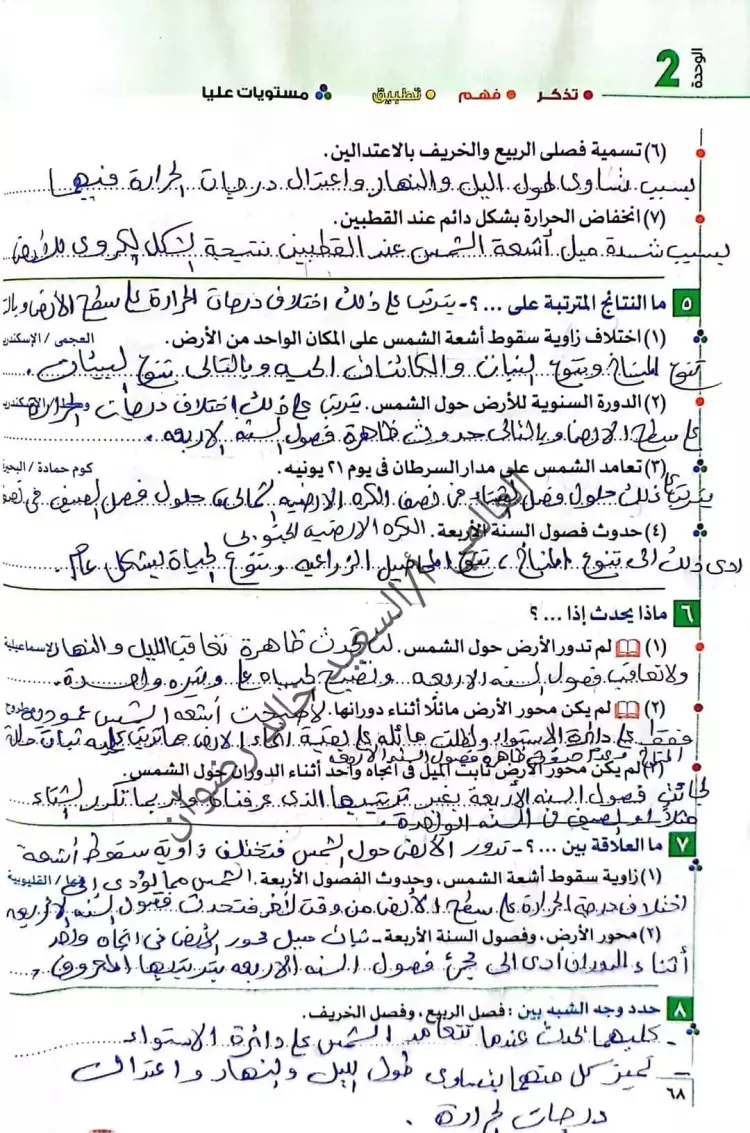 الوحدة 2
تذكر فهم تطبيق مستويات عليا
(٦) تسمية فصلى الربيع والخريف بالاعتدالين.
بسبب تساوى طول الليل والنهار واعتدال درجات الحرارة فيها
(٧) انخفاض الحرارة بشكل دائم عند القطبين.
بسبب شدة ميل أشعة الشمس عند القطبين نتيجة الشكل الكروى للأرض
٥ ما النتائج المترتبة على ... ؟ - يترتب على ذلك اختلاف درجات الحرارة على سطح الأرض وبالت
(١) اختلاف زاوية سقوط أشعة الشمس على المكان الواحد من الأرض. العجمى / الإسكندرية
تنوع المناخ وتنوع النبات والكائنات الحيه وبالتالى تنوع البيئات.
(٢) الدورة السنوية للأرض حول الشمس. يترتب على ذلك اختلاف درجات الحرارة
على سطح الارض وبالتالى حدوث ظاهرة فصول السنه الاربعه.
(٣) تعامد الشمس على مدار السرطان فى يوم ٢١ يونيه. كوم حمادة / البحيرة
يترتب على ذلك حلول فصل فى نصف الكره الارضيه الشمالى حلول فصل الصيف فى نصف
(٤) حدوث فصول السنة الأربعة. الكره الارضيه الجنوبى
ادى ذلك الى تنوع المناخ، تنوع المحاصيل الزراعيه وتنوع الحياة بشكل عام.
٦ ماذا يحدث إذا ... ؟
(١) لم تدور الأرض حول الشمس. لن تحدث ظاهرة تعاقب الليل والنهار الإسماعيلية
ولا تعاقب فصول السنه الاربعه وتصبح الحياه على وتيره واحدة.
(٢) لم يكن محور الأرض مائلًا أثناء دورانها. لأصبحت أشعه الشمس عموديه
فقط على دائرة الاستواء وظلت مائله على بقية انحاء الارض مما يترتب عليه ثبات حالة
المناخ فى ظاهره فصول السنه الاربعه
(٣) لم يكن محور الأرض ثابت الميل فى اتجاه واحد أثناء الدوران حول الشمس.
لجائت فصول السنه الأربعة بغير ترتيبها الذى عرفناه وربما تكرر الشتاء
مثلا او الصيف فى السنه الواحدة.
٧ ما العلاقة بين ... ؟ - تدور الأرض حول الشمس فتختلف زاوية سقوط أشعة
(١) زاوية سقوط أشعة الشمس، وحدوث الفصول الأربعة. الشمس مما يؤدى الى / القليوبية
اختلاف درجة الحرارة على سطح الأرض من وقت لآخر فتحدث فصول السنه الاربعه
(٢) محور الأرض، وفصول السنة الأربعة - ثبات ميل محور الأرض فى اتجاه واحد
أثناء الدوران أدى الى مجئ فصول السنه الاربعه بترتيبها المعروف.
٨ حدد وجه الشبه بين : فصل الربيع، وفصل الخريف.
- كليهما يحدث عندما تتعامد الشمس على دائرة الاستواء
- تميز كل منهما بتساوى طول الليل والنهار واعتدال
درجات الحرارة.
٦٨
السعيد خالد رضوان